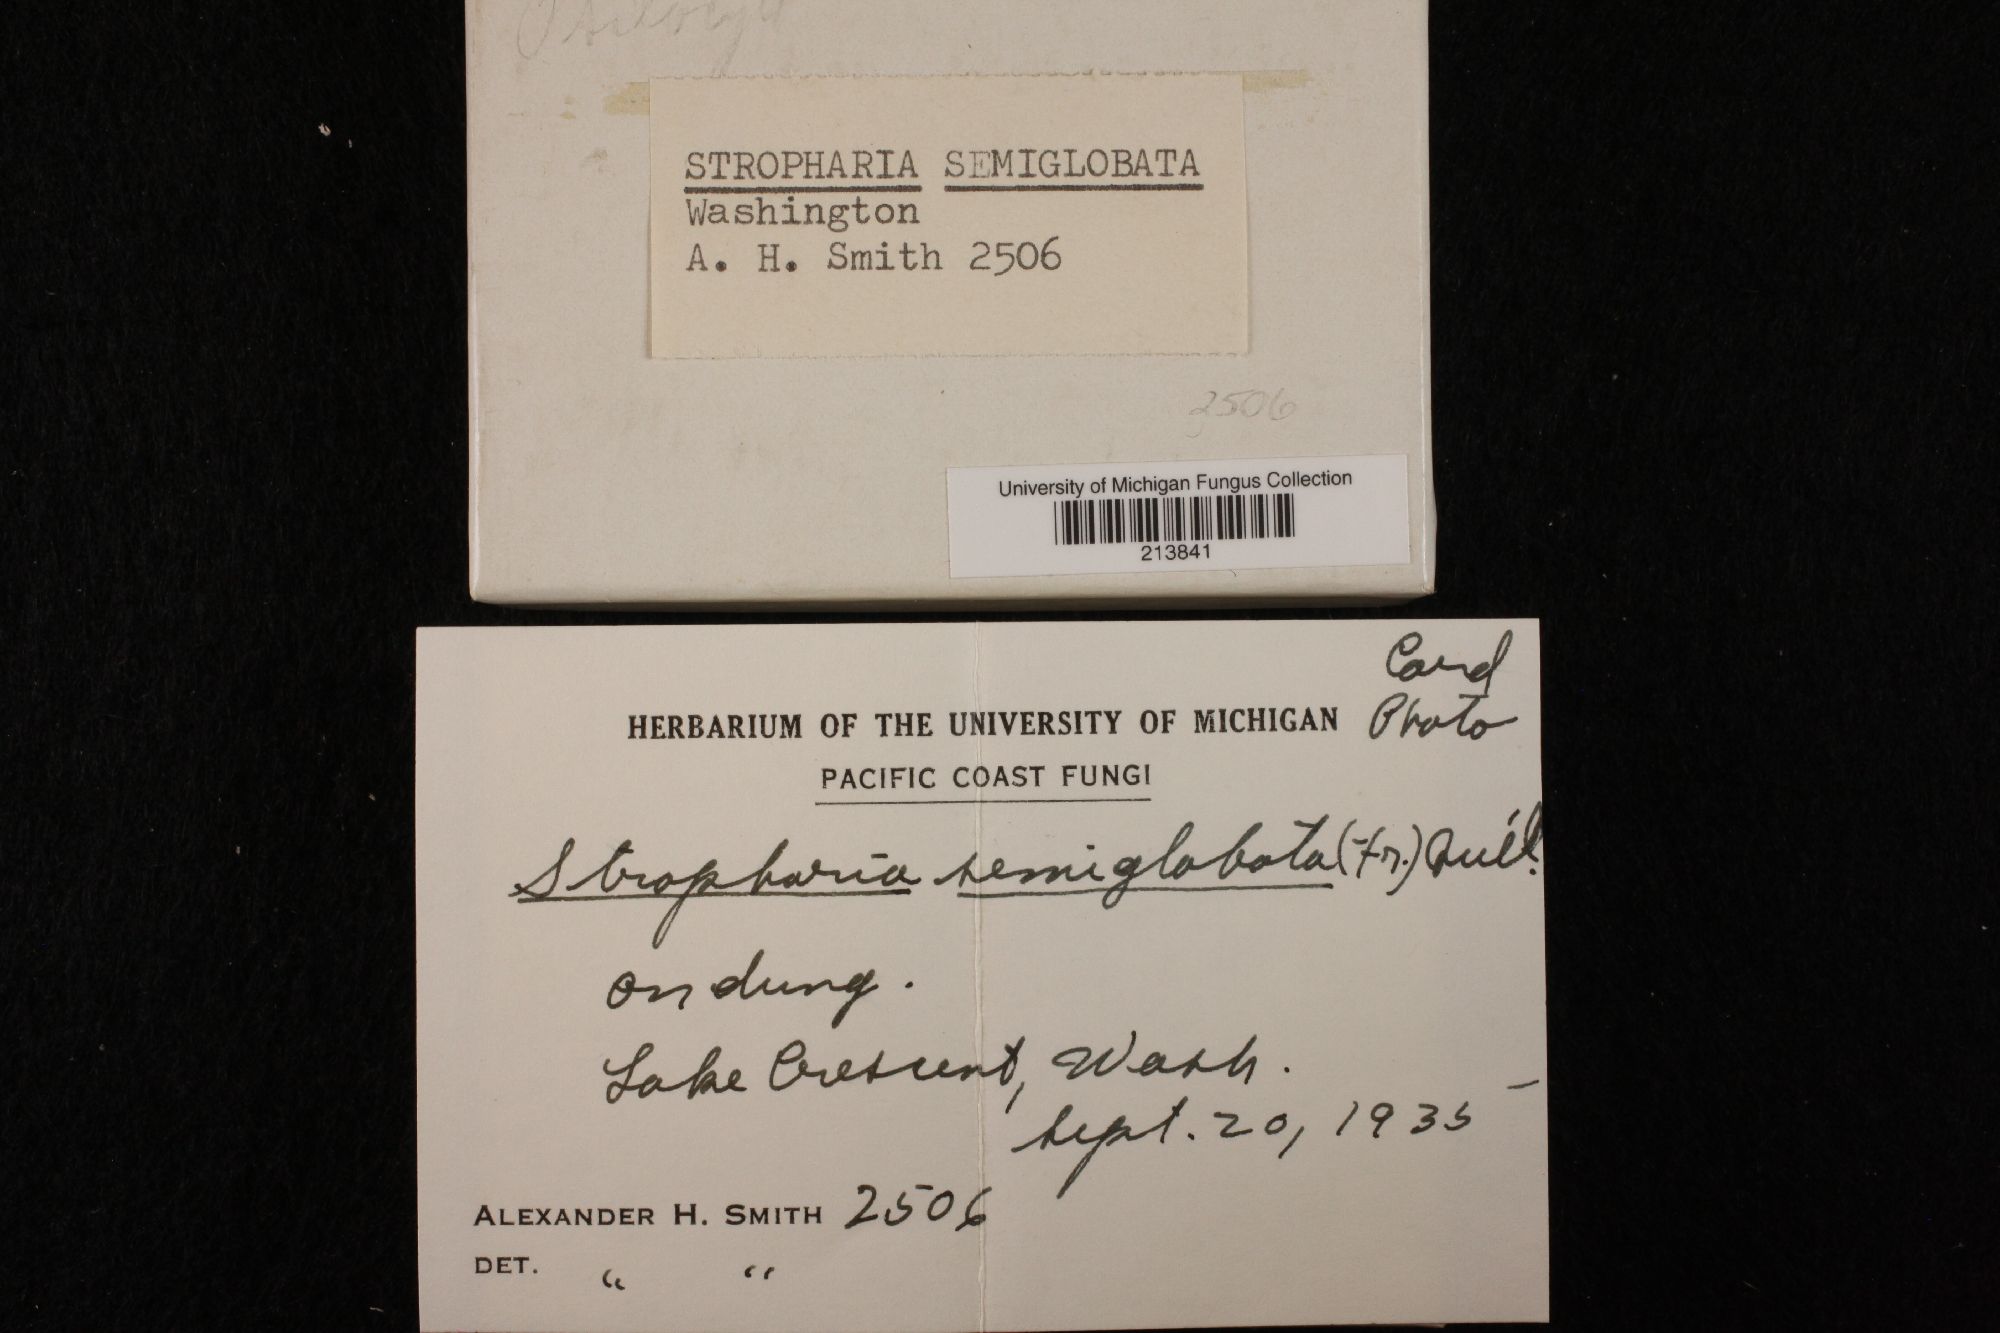 STROPHARIA SEMIGLOBATA
Washington
A. H. Smith 2506
2506
University of Michigan Fungus Collection
213841
Card
Photo
HERBARIUM OF THE UNIVERSITY OF MICHIGAN
PACIFIC COAST FUNGI
Stropharia semiglobata (Fr.) Quél.
on dung.
Lake Crescent, Wash.
Sept. 20, 1935
ALEXANDER H. SMITH 2506
DET. " "